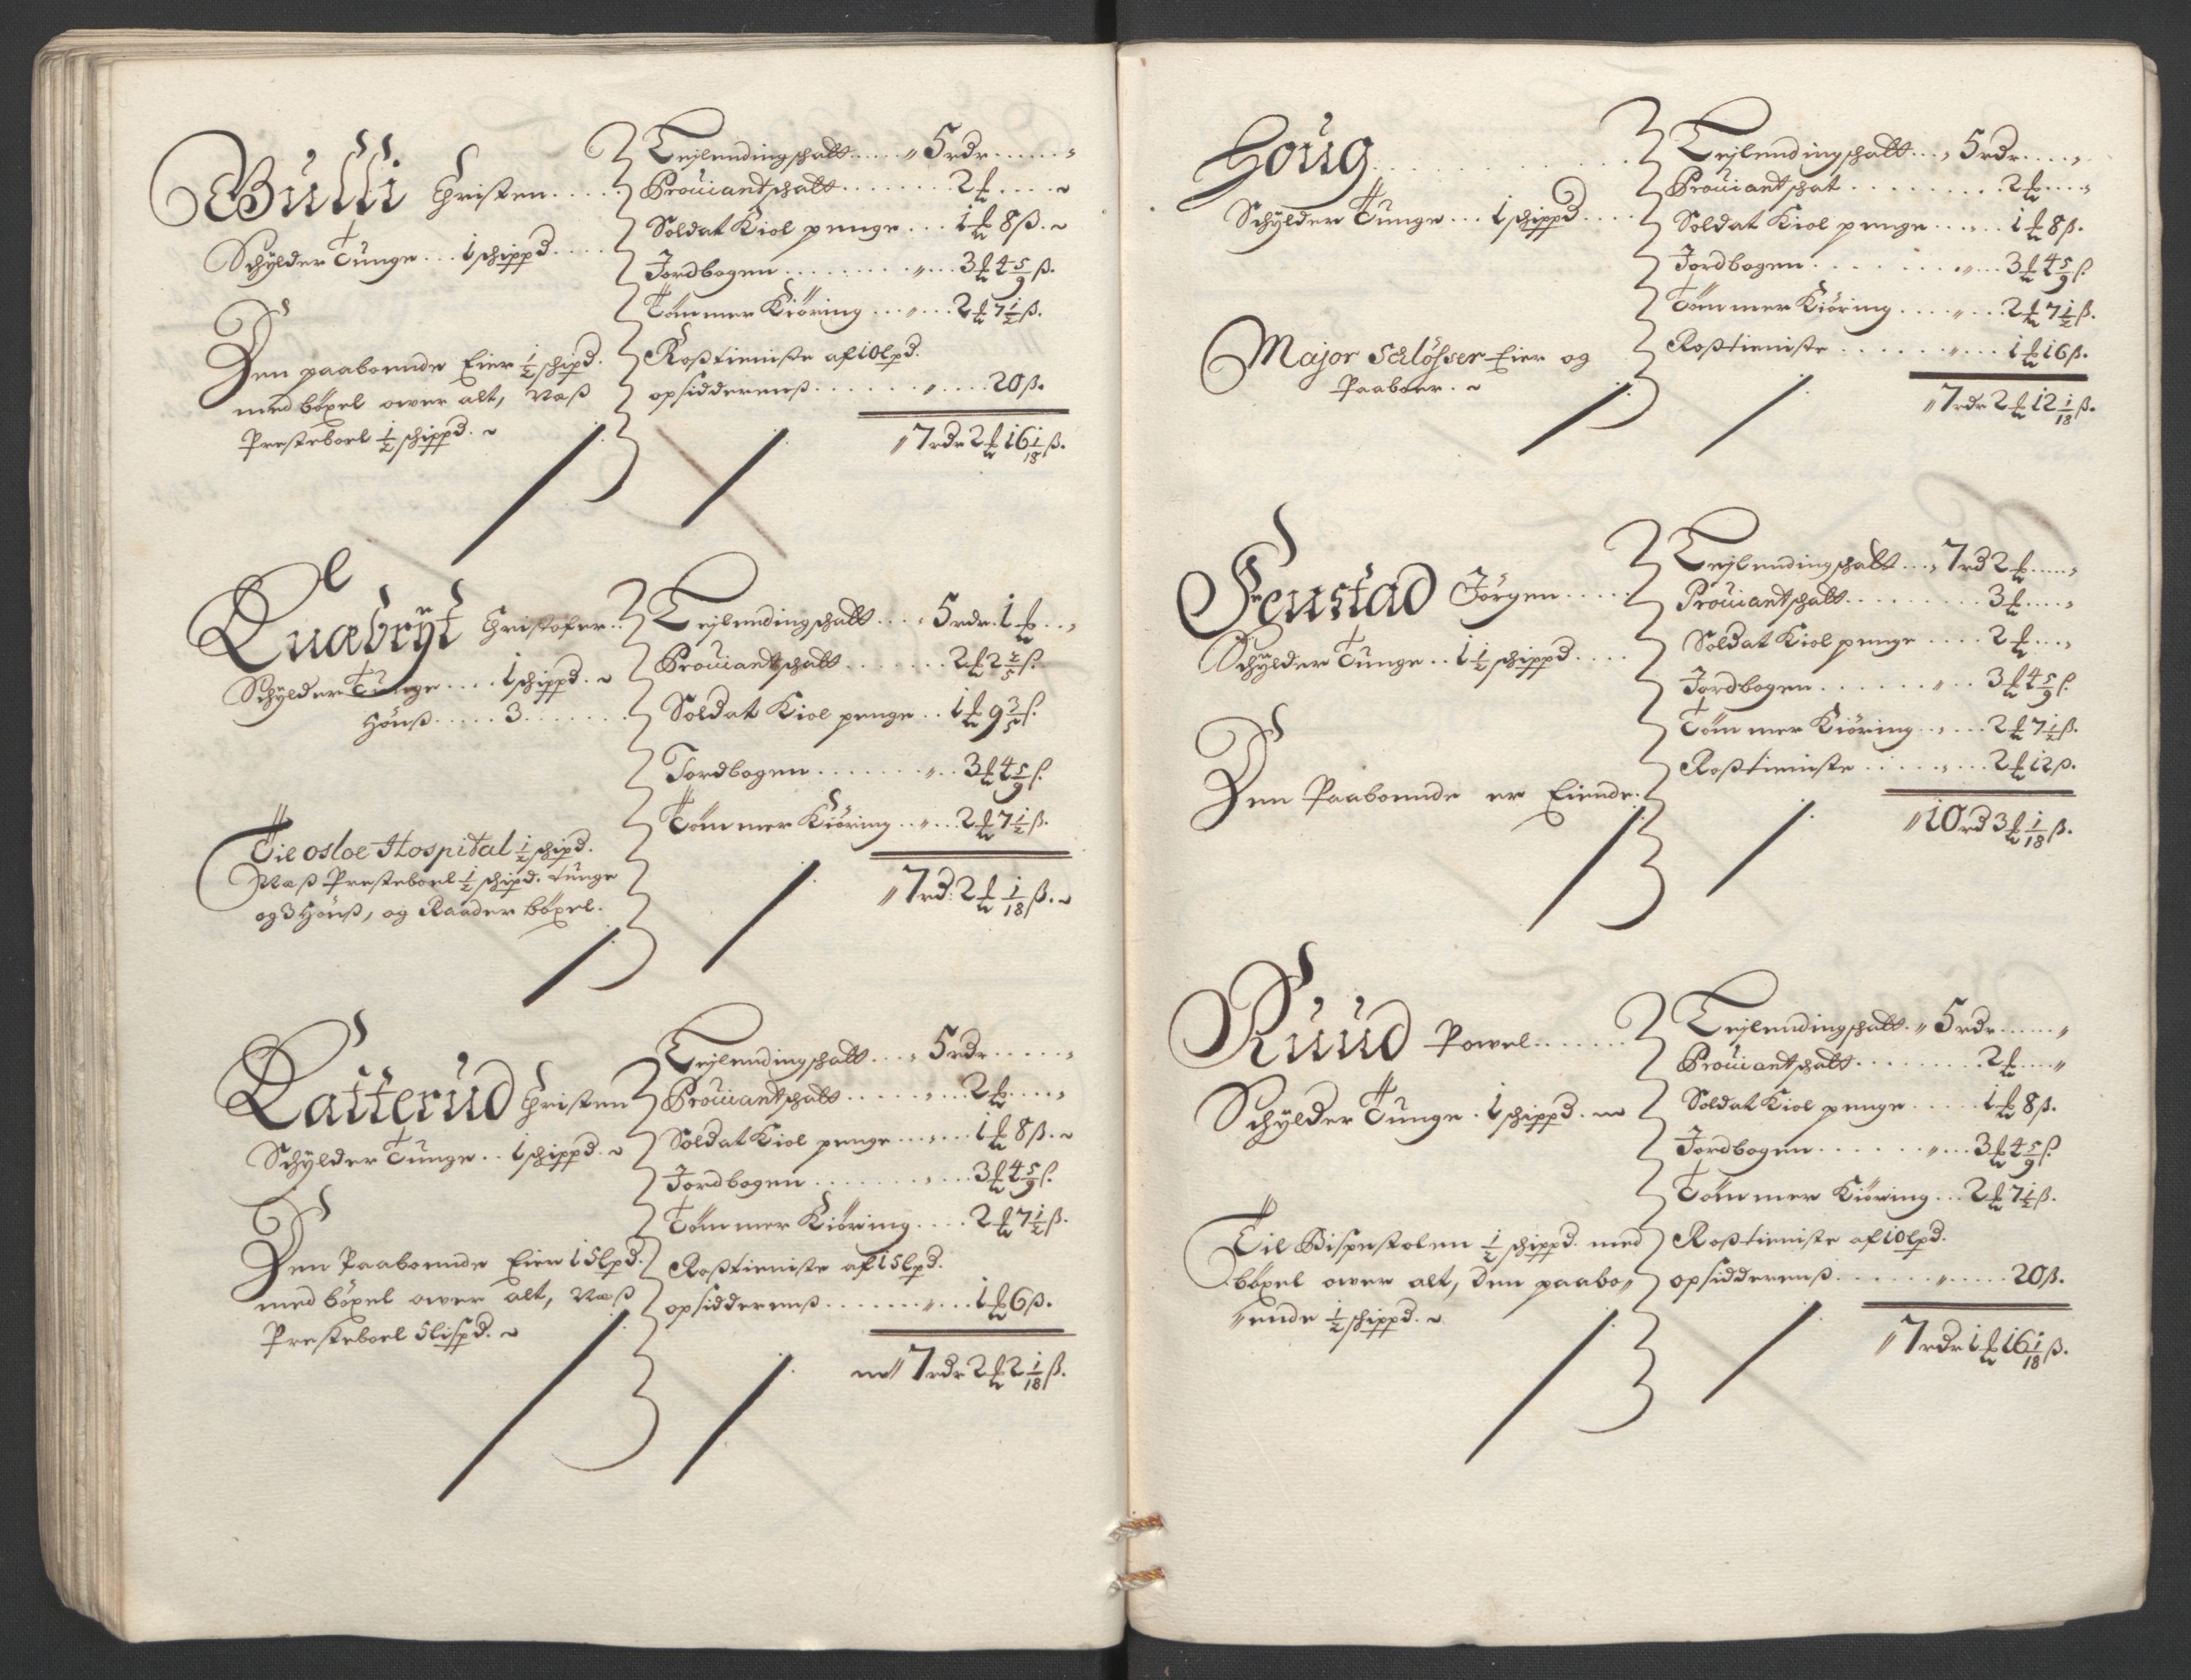 Wulli Christen.....
Schÿlder Tunge... 1 schippd.....
Den paaboende Eier ½ schipd.
med böxel ower alt, Næss
Presteboel ½ schippd.
Leÿlendingschatt..... 5 rdr......
Prouiantschatt........ 2 ₻.....
Soldat Kiol penge... 1 ₻ 8 ß.
Jordbogen......... 3 ₻ 4 5/9 ß.
Tömmer Kiöring...... 2 ₻ 7 ½ ß.
Rosstieniste af 10 lpd.
opsidderenss........... 20 ß.
7 rdr 2 ₻ 16 1/18 ß.
Quæbrÿt Christofer..
Schÿlder Tunge.... 1 schippd.
Hönss..... 3.......
Til Osloe Hospital ½ schipd.
Næss Presteboel ½ schipd. tunge
og 3 Hönss, og Raader böxel.
Leÿlendingschatt.... 5 rdr. 1 ₻...
Prouiantschatt....... 2 ₻ 2 2/5 ß.
Soldat Kiol penge.. 1 ₻ 9 3/5 ß.
Jordbogen......... 3 ₻ 4 5/9 ß.
Tömmer Kiöring..... 2 ₻ 7 ½ ß.
7 rd: 2 ₻ 1/18 ß.
Latterud Christen
Schÿlder Tunge.. 1 schippd.
Den Paaboende Eier 15 lpd.
med böxel ower alt, Næss
Presteboel 5 lispd.
Leÿlendingschatt.... 5 rdr......
Prouiantschatt........ 2 ₻....
Soldat Kiol penge...... 1 ₻ 8 ß.
Jordbogen.......... 3 ₻ 4 5/9 ß.
Tömmer Kiöring.... 2 ₻ 7 ½ ß.
Rosstieniste af 15 lpd.
opsidderenss.......... 1 ₻ 6 ß.
7 rdr 2 ₻ 2 1/18 ß.
Houg..........
Schÿlder Tunge... 1 schippd....
Major Schlösser Eier og
Paaboer.
Leÿlendingschatt... 5 rdr....
Prouiantschat........ 2 ₻....
Soldat Kiol penge..... 1 ₻ 8 ß.
Jordbogen......... 3 ₻ 4 5/9 ß.
Tömmer Kiöring....... 2 ₻ 7 ½ ß.
Rosstieniste......... 1 ₻ 16 ß.
7 rdr 2 ₻ 12 1/18 ß.
Fenstad Jörgen.....
Schÿlder Tunge.. 1 ½ schippd....
Den Paaboende er Eiende.
Leÿlendingschatt... 7 rd 2 ₻....
Prouiantschatt......... 3 ₻....
Soldat Kiol penge.... 2 ₻....
Jordbogen......... 3 ₻ 4 5/9 ß.
Tömmer Kiöring...... 2 ₻ 7 ½ ß.
Rosstieniste........ 2 ₻ 12 ß.
10 rd 3 ₻ 1/18 ß.
Ruud Powel.......
Schÿlder Tunge. 1 schippd.
Til Bispestolen ½ schippd. med
böxel ower alt, den paabo„
„ende ½ schippd.
Leÿlendingschatt. 5 rdr......
Prouiantschatt......... 2 ₻....
Soldat Kiol penge..... 1 ₻ 8 ß.
Jordbogen......... 3 ₻ 4 5/9 ß.
Tömmer Kiöring... 2 ₻ 7 ½ ß.
Rosstieniste af 10 lpd.
opsidderenss........... 20 ß.
7 rdr 1 ₻ 16 1/18 ß.